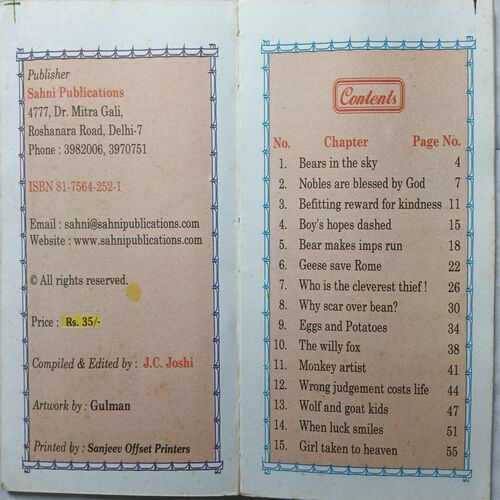 Publisher
Sahni Publications
4777, Dr. Mitra Gali,
Roshanara Road, Delhi-7
Phone : 3982006, 3970751
ISBN 81-7564-252-1
Email : sahni@sahnipublications.com
Website : www.sahnipublications.com
© All rights reserved.
Price : Rs. 35/-
Compiled & Edited by : J.C. Joshi
Artwork by : Gulman
Printed by : Sanjeev Offset Printers
Contents
No. Chapter Page No.
1. Bears in the sky 4
2. Nobles are blessed by God 7
3. Befitting reward for kindness 11
4. Boy's hopes dashed 15
5. Bear makes imps run 18
6. Geese save Rome 22
7. Who is the cleverest thief ! 26
8. Why scar over bean? 30
9. Eggs and Potatoes 34
10. The willy fox 38
11. Monkey artist 41
12. Wrong judgement costs life 44
13. Wolf and goat kids 47
14. When luck smiles 51
15. Girl taken to heaven 55